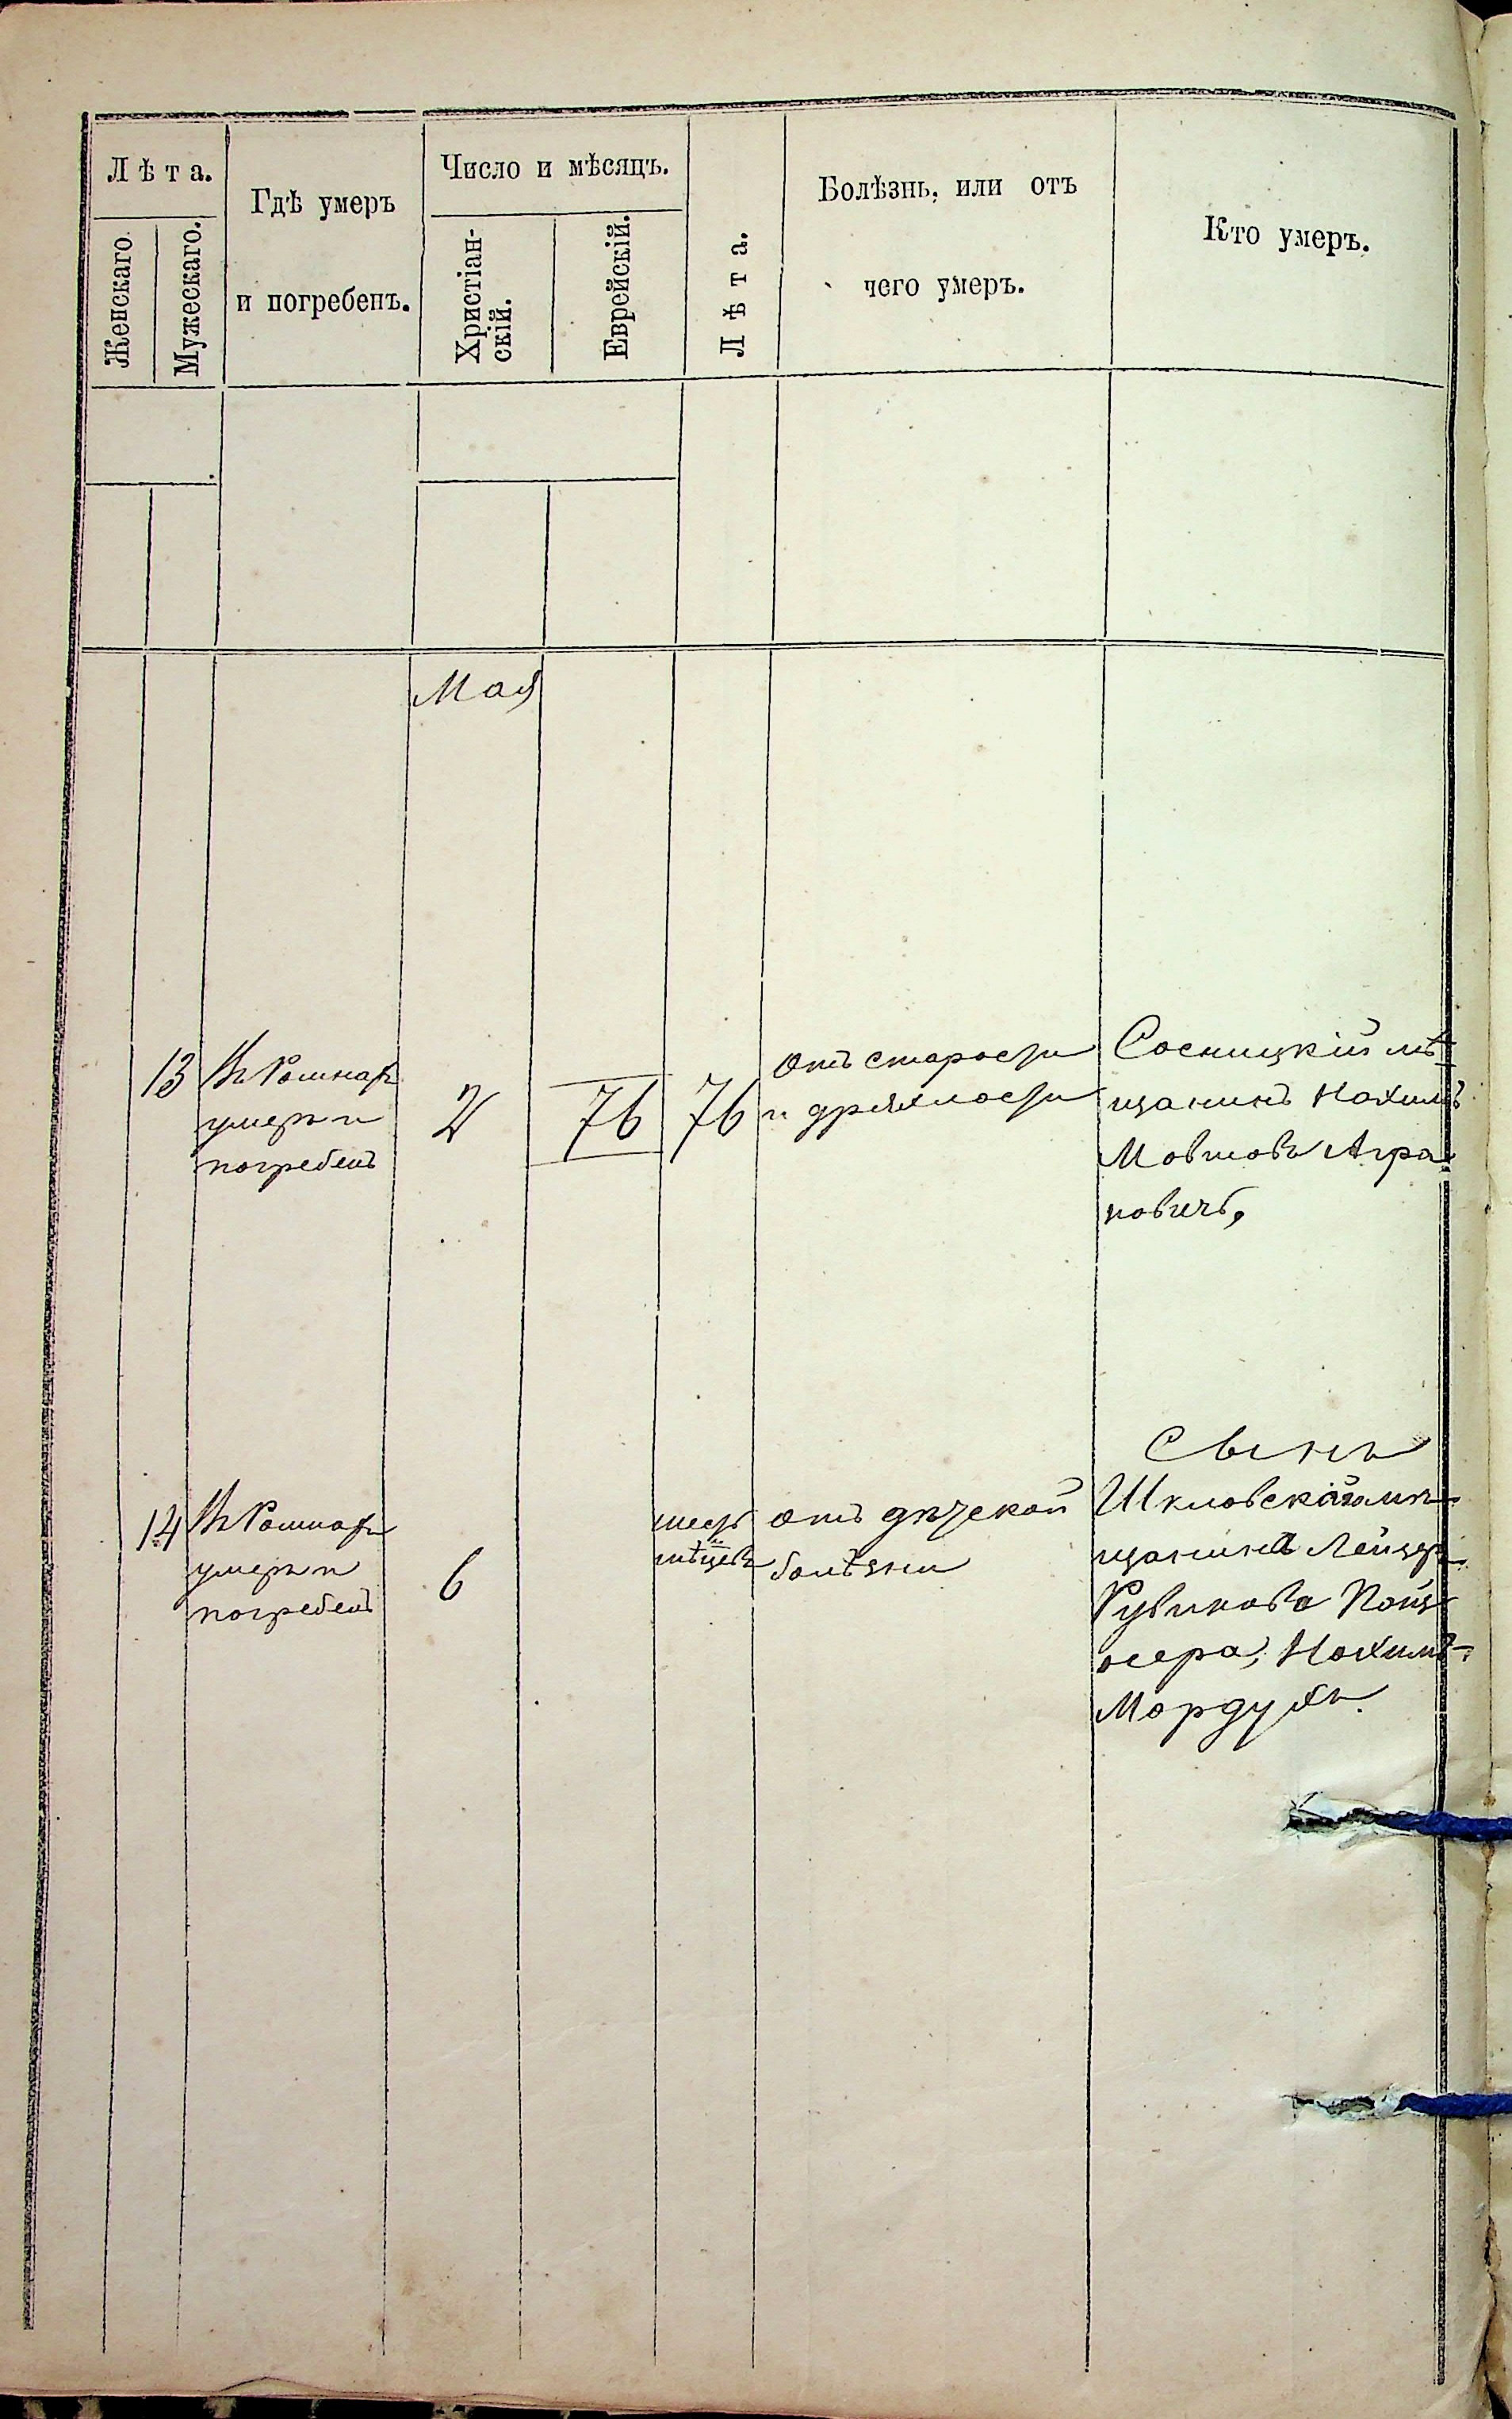 Лѣта.
Женскаго.
Мужескаго.
Гдѣ умеръ
и погребенъ.
Число и мѣсяцъ.
Христіан-
скій.
Еврейскій.
Лѣта.
Болѣзнь, или отъ
чего умеръ.
Кто умеръ.
Мая
13
Въ Ромнахъ
умеръ и
погребенъ
2
76
76
отъ старости
и дряхлости
Сосницкій мѣ-
щанинъ Нахимъ
Мовшовъ Агра-
новичъ,
14
Въ Ромнахъ
умеръ и
погребенъ
6
шесть
мѣцевъ
отъ дѣтской
болѣзни
Сынъ
Шкловскаго мѣ-
щанина Лейзер
Рувинова
Нохимъ-
Мордухъ.